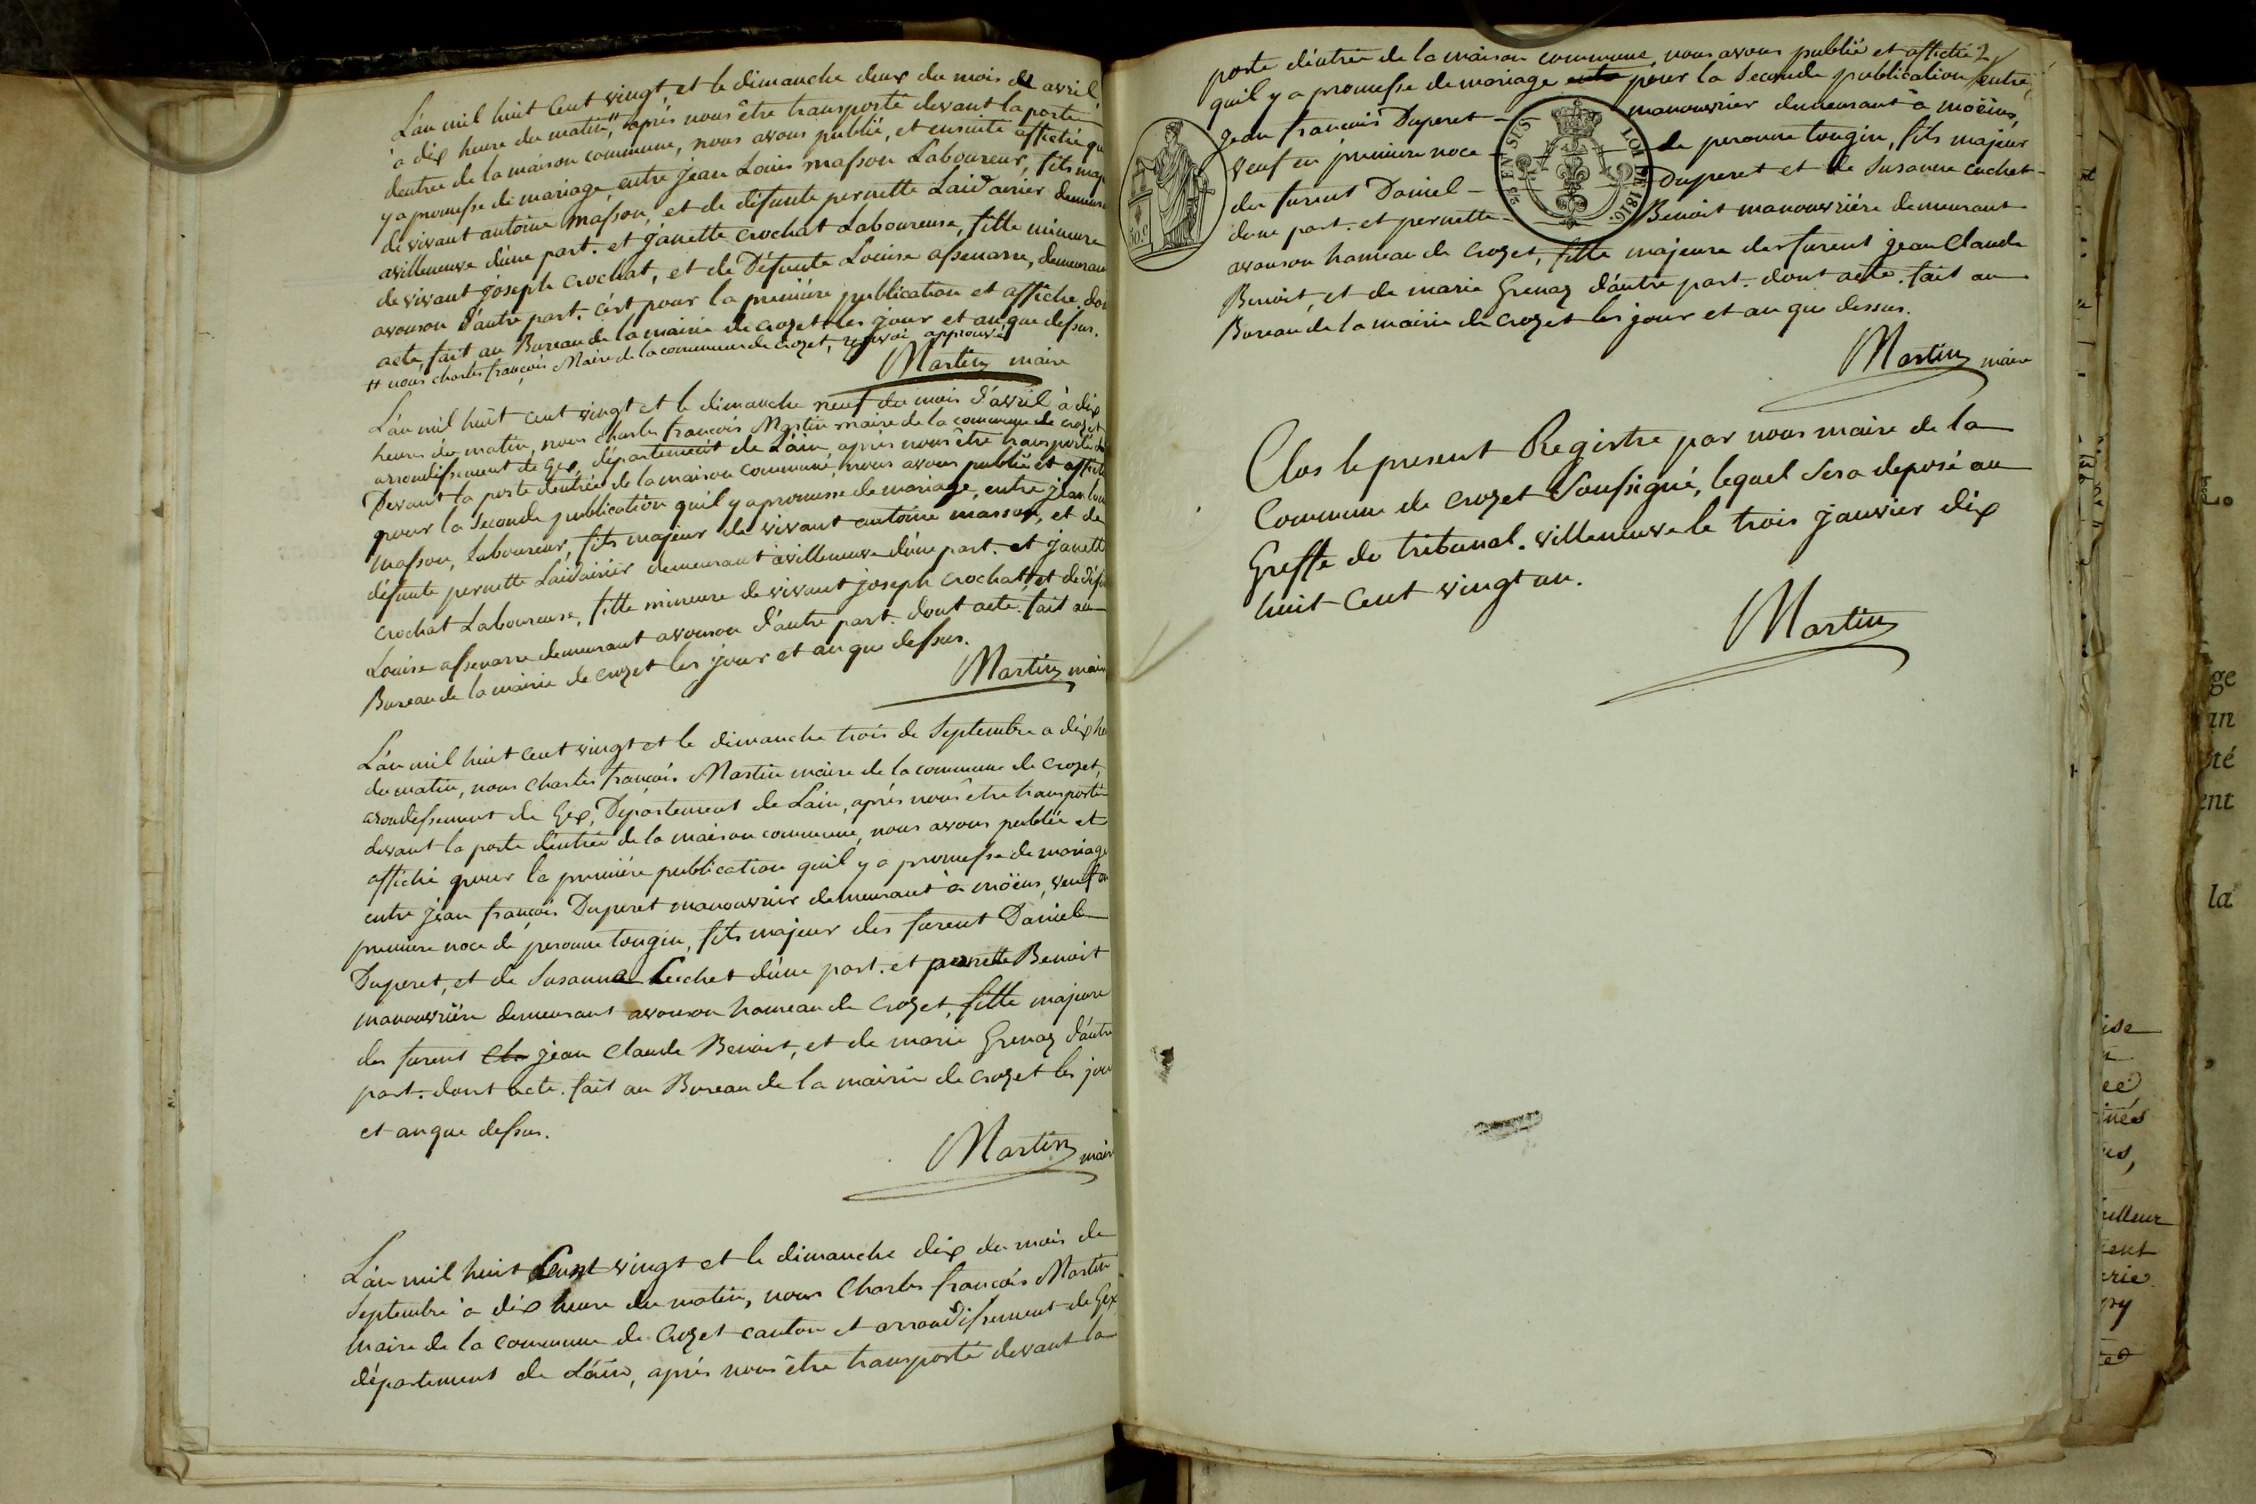 L'an mil huit cent vingt et le dimanche deux du mois de avril
à dix heure du matin, ## après nous être transporté devant la porte
dentree de la maison commune, nous avons publié, et ensuite affiché qu
y a promesse de mariage, entre jean Louis masson Laboureur, fils maj
de vivant antoine masson, et de défunte pernette Laidairier demeura
avilleneuve d'une part. et janette crochat Laboureuse, fille mineure
de vivant joseph crochat, et de Défunte Louise assenarre, demeuran
avouson d'autre part. c'est pour la première publication et affiche, don
acte, fait au Bureau de la mairie de crozet les jour et an que dessus.
## nous charles françois Maire de la commune de crozet, renvoi approuvé
Martin maire
L'an mil huit cent vingt et le dimanche neuf du mois d'avril à dix
heures du matin, nous charles francois Martin maire de la commune de crozet
arrondissement de Gex, département de L'ain, après nous être transporté
Devant la porte dentrée de la maison commune, nous avons publié et affiché
pour la seconde publication quil y a promesse de mariage, entre jean loui
masson, laboureur, fils majeur de vivant antoine masson, et de
défunte pernette Laidairier demeurant avilleneuve d'une part. et janett
crochat Laboureuse, fille mineure de vivant joseph crochat, et de défu
Louise assenarre demeurant avouson d'autre part. dont acte. fait au
Bureau de la mairie de crozet les jour et an que dessus.
Martin mair
L'an mil huit cent vingt et le dimanche trois de septembre a dix he
du matin, nous charles françois Martin maire de la commune de crozet,
arondissement de Gex, Département de Lain, après nous être transporté
devant la porte d'entrée de la maison commune, nous avons publié et
affiché pour la première publication quil y a promesse de mariage
entre jean françois Duperet manouvrier demeurant à moëns, veuf en
premiere noce de peronne tougin, fils majeur des furent Daniel
Duperet, et de Susanne Cuchet d'une part. et pernette Benoit
manouvrière demeurant avouson hameau de crozet, fille majeure
des furent Cla jean Claude Benoit, et de marie Grenaz d'autre
part. dont acte. fait au Bureau de la mairie de crozet les jour
et an que dessus.
Martin mair
L'an mil huit Cent vingt et le dimanche dix du mois de
Septembre à dix heure du matin, nous Charles françois Martin
maire de la commune de Crozet canton et arrondissement de Gex
département de L'ain, après nous être transporté devant la
porte d'entrée de la maison commune, nous avons publié et affiché
quil y a promesse de mariage ente pour la seconde publication entre,
jean francois Duperet manouvrier demeurant à moëns,
veuf en premiere noce de peronne tougin, fils majeur
des furent Daniel Duperet et de Susanne cuchet
dune part. et pernette Benoit manouvrière demeurant
avouson hameau de crozet, fille majeure des furent jean Claude
Benoit, et de marie Grenaz d'autre part. dont acte. fait au
Bureau de la mairie de crozet les jour et an que dessus.
Martin maire
LOI DE 1816.
Clos le present Registre par nous maire de la
Commune de crozet Soussigné, lequel sera deposé au
Greffe du tribunal. villeneuve le trois janvier dix
huit Cent vingt un.
Martin
ge
an
té
ent
la